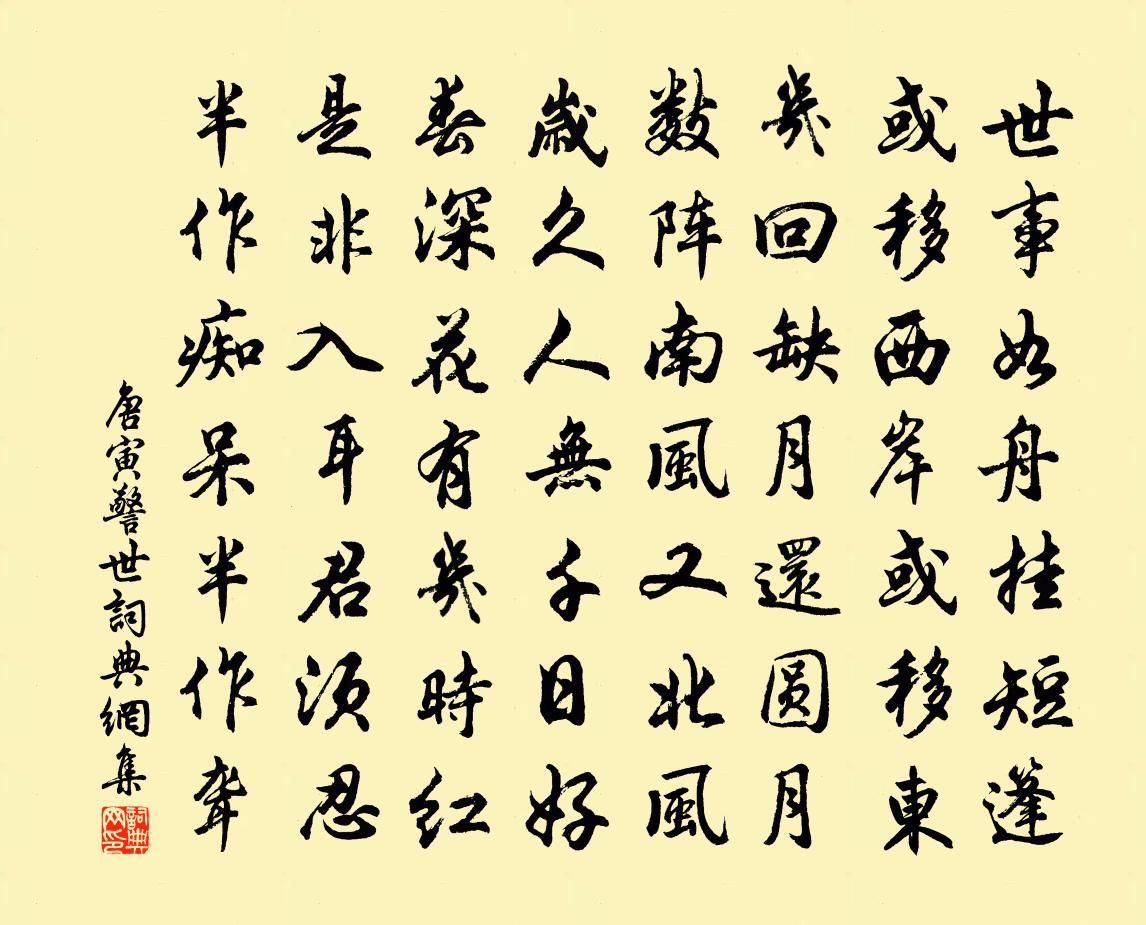 世事如舟挂短蓬
或移西岸或移東
幾回缺月還圆月
數阵南風又北風
歲久人無千日好
春深花有幾時红
是非入耳君須忍
半作痴呆半作聋
唐寅警世詞典網集
詞典網印